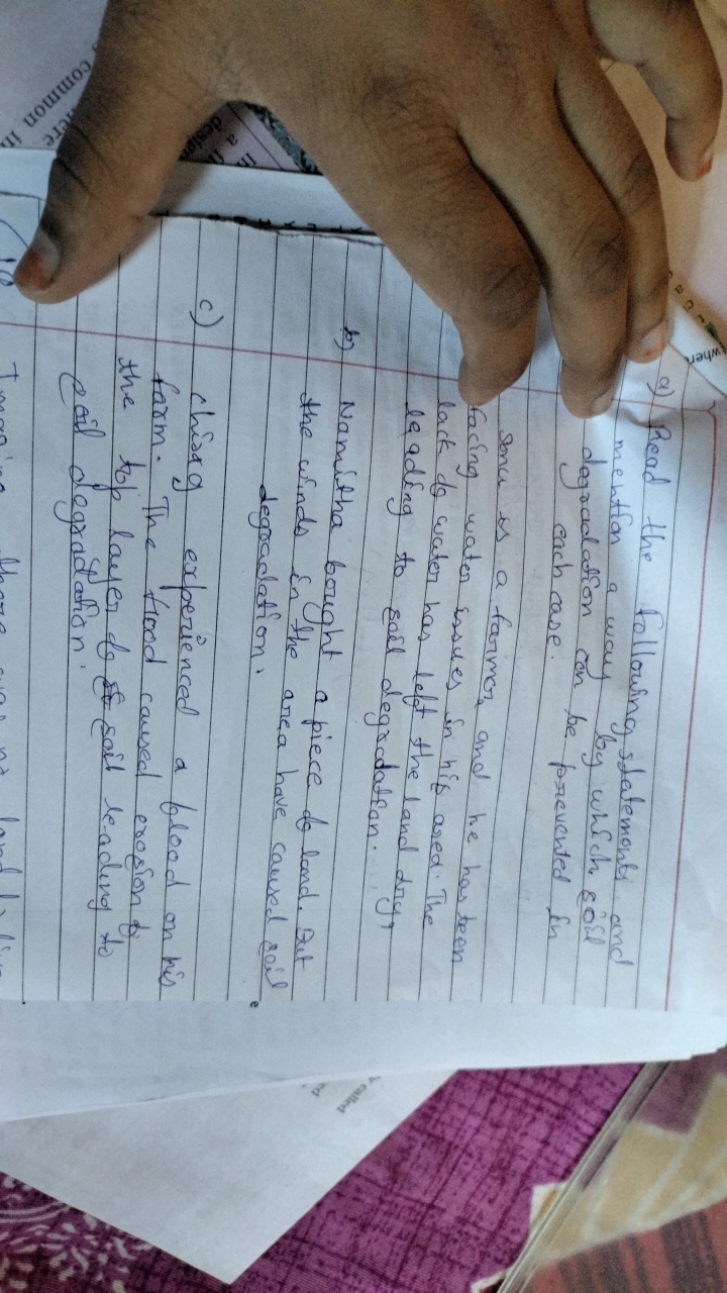 a) Read the following statements and
mention a way by which soil
degradation can be prevented in
each case.
Sonu is a farmer, and he has been
facing water issues in his area. The
lack of water has left the land dry,
leading to soil degradation.
b) Namitha bought a piece of land. But
the winds in the area have caused soil
degradation.
c) chirag experienced a blood on his
farm. The flood caused erosion of
the top layer of soil leading to
soil degradation.
common in
here
a
design
in
when
called